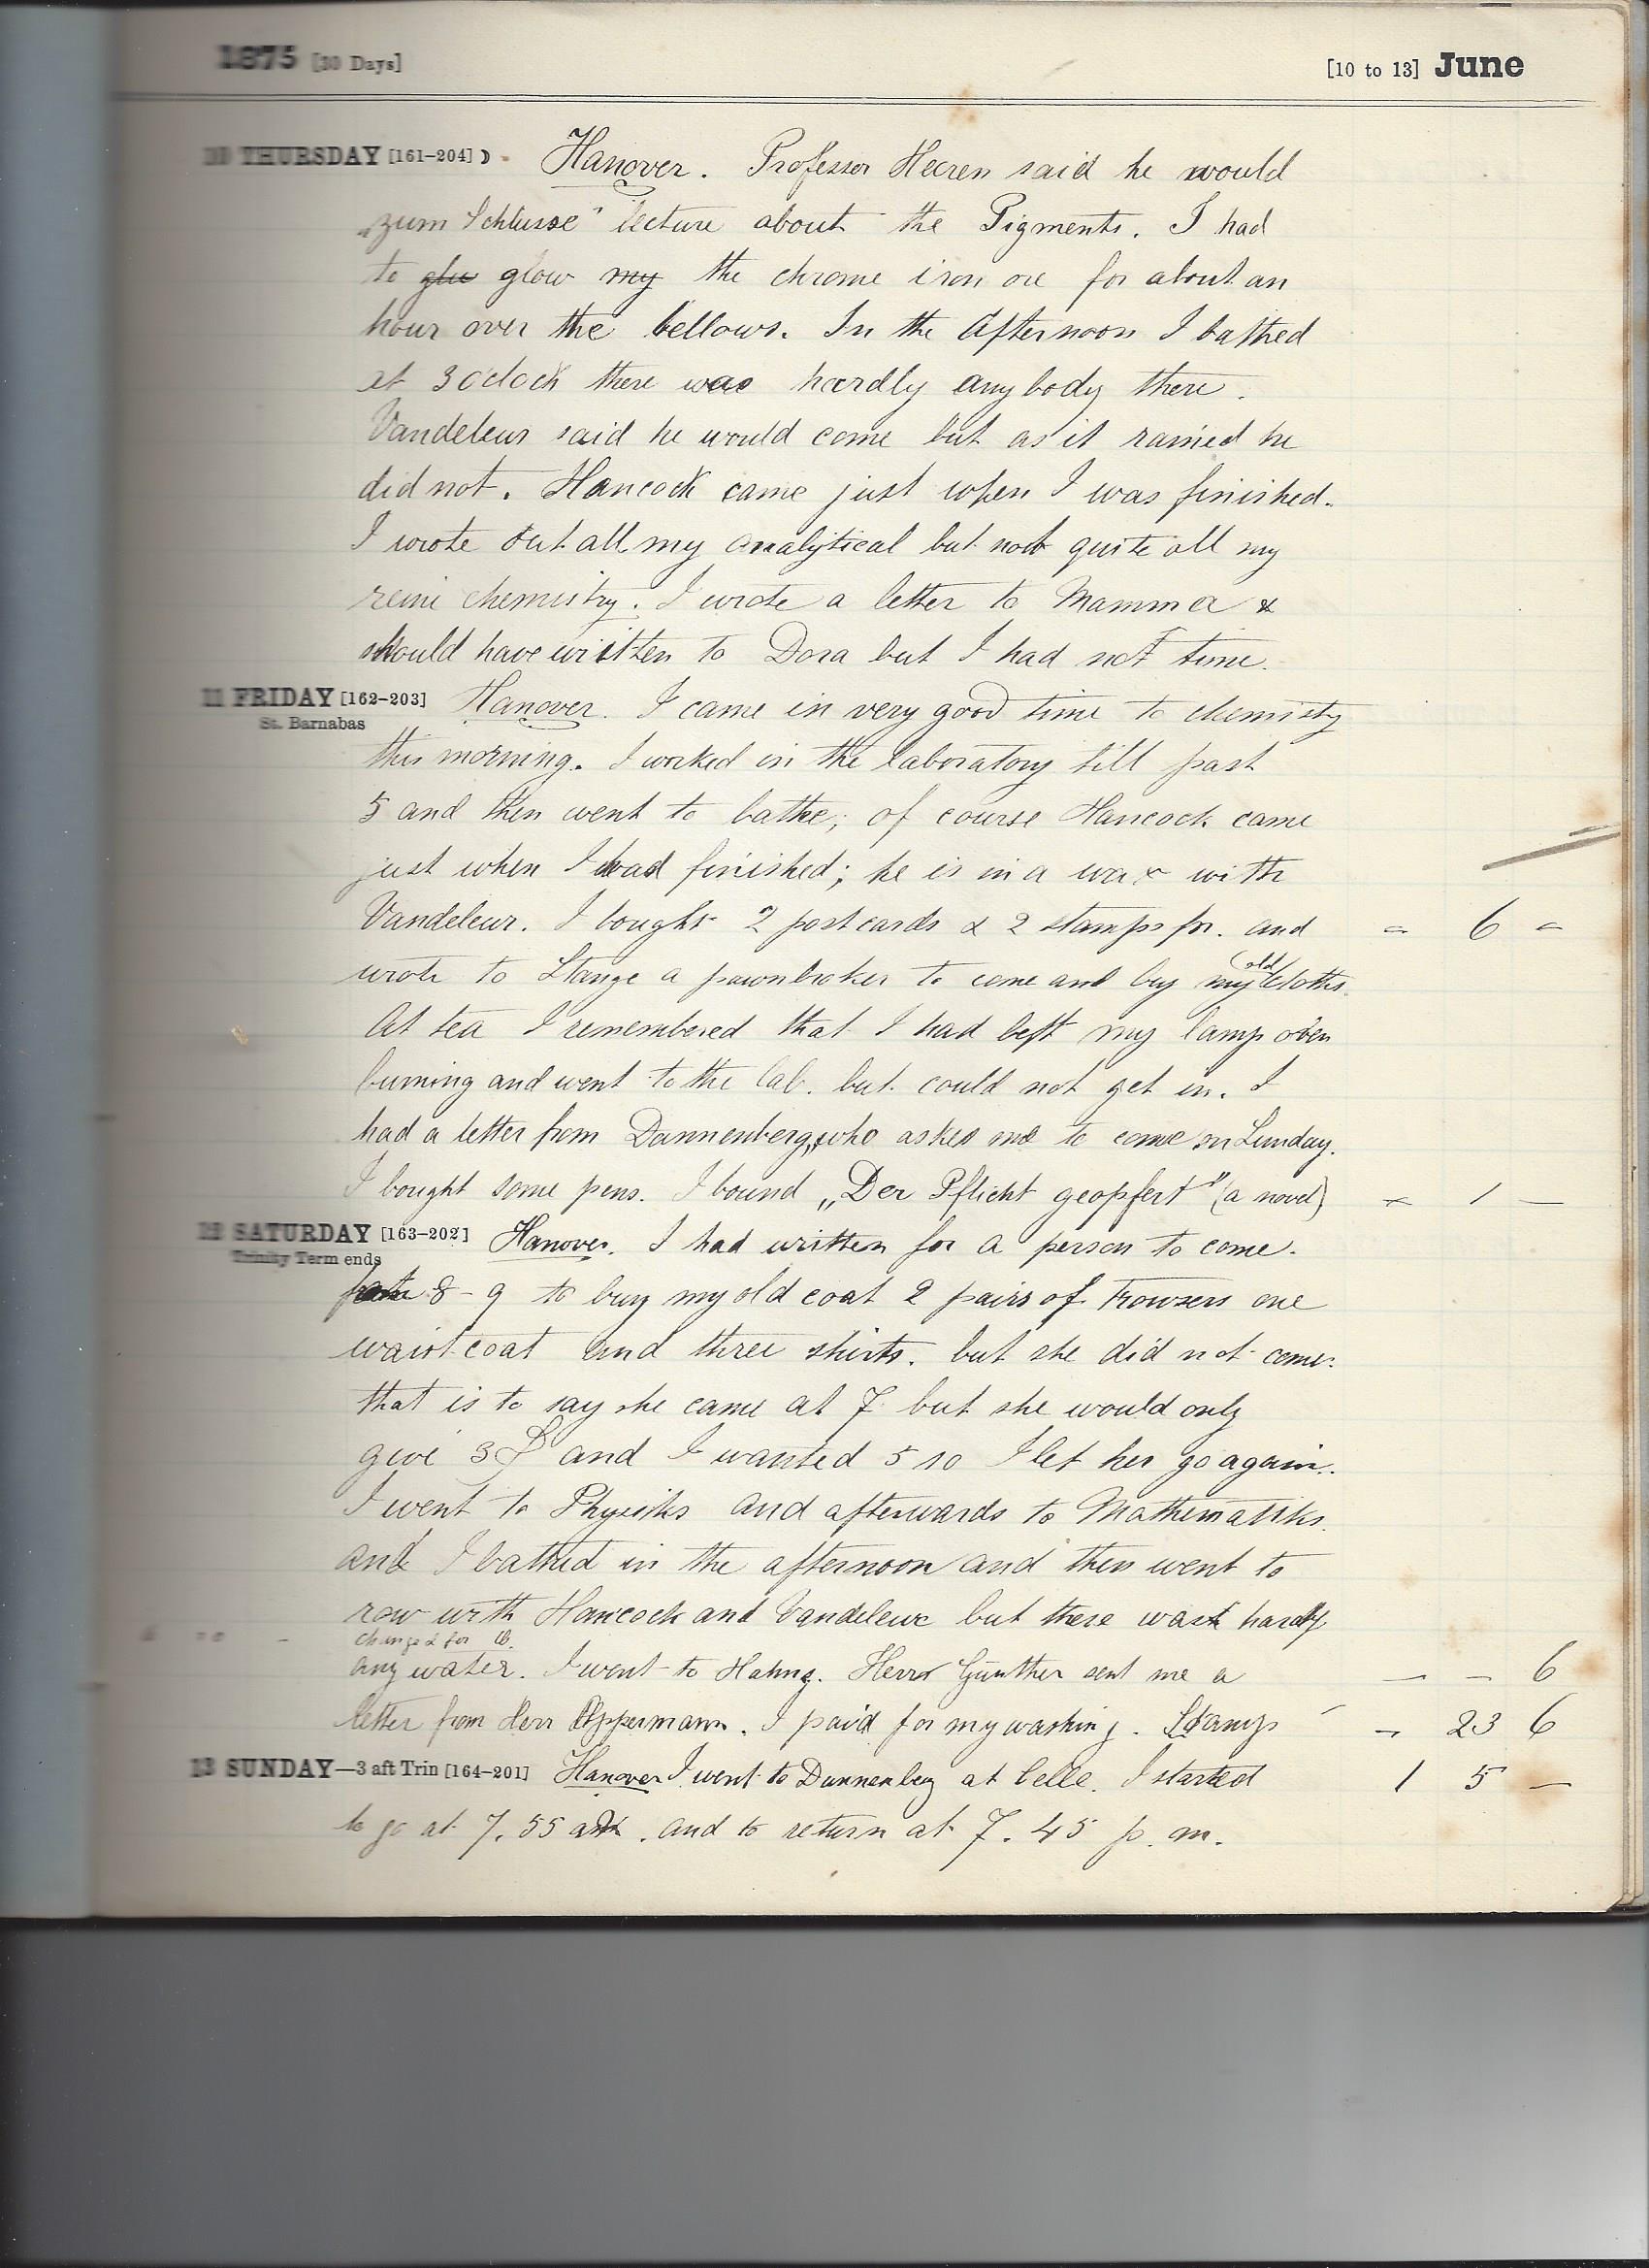 1875 [30 Days] [10 to 13] June
10 THURSDAY [161-204] Hanover. Professor Heeren said he would
„zum Schlusse" lecture about the Pigments. I had
to glu glow my the chrome iron ore for about an
hour over the bellows. In the afternoon I bathed
at 3 oclock there was hardly anybody there.
Vandeleur said he would come but as it rained he
did not. Hancock came just when I was finished.
I wrote out all my analytical but not quite all my
reine chemistry. I wrote a letter to Mamma &
should have written to Dora but I had not time.
11 FRIDAY [162-203] Hanover. I came in very good time to chemisty
St. Barnabas
this morning. I worked in the laboratory till past
5 and then went to bathe; of course Hancock came
just when I had finished; he is in a wax with
Vandeleur. I bought 2 postcards & 2 stamps for. and = 6 =
wrote to Stange a pawnbroker to come and buy my old cloths.
At tea I remembered that I had left my lamp oben
burning and went to the lab. but could not get in. I
had a letter from Dannenberg, who askes me to come on Sunday.
I bought some pens. I bound „Der Pflicht geopfert" (a novel) 1 —
12 SATURDAY [163-202] Hanover. I had written for a person to come.
Trinity Term ends
8-9 to buy my old coat 2 pairs of Trowsers one
waistcoat and three shirts. but she did not come.
that is to say she came at 7 but she would only
give 3 and I wanted 5 so I let her go again.
I went to Physiks and afterwards to Mathematiks.
and I bathed in the afternoon and then went to
row with Hancock and Vandeleur but there was hardly
any water. I went to Hahns. Herr Günther sent me a — — 6
letter from Herr Oppermann. I paid for my washing. Stamps - 23 6
13 SUNDAY—3 aft Trin [164-201] Hanover I went to Dannenberg at Celle. I started 1 5 —
to go at 7.55 and to return at 7.45 p.m.